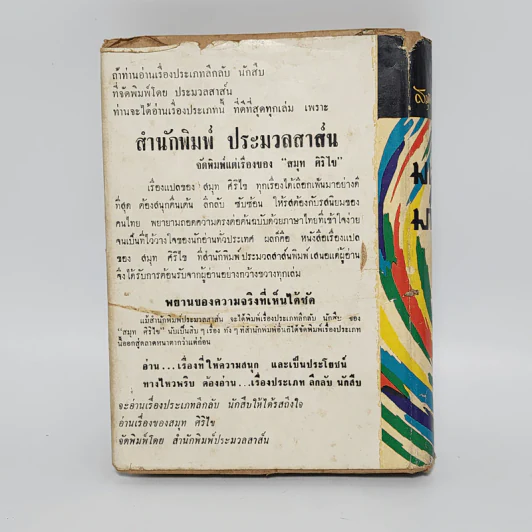 ถ้าท่านอ่านเรื่องประเภทลึกลับ นักสืบ
ที่จัดพิมพ์โดย ประมวลสาส์น
ท่านจะได้อ่านเรื่องประเภทนี้ ที่ดีที่สุดทุกเล่ม เพราะ
สำนักพิมพ์ ประมวลสาส์น
จัดพิมพ์แต่เรื่องของ "สมุท ศิริไข"
เรื่องแปลของ สมุท ศิริไข ทุกเรื่องได้เลือกเฟ้นมาอย่างดี
ที่สุด ต้องสนุกตื่นเต้น ลึกลับ ซับซ้อน ให้รสต้องกับรสนิยมของ
คนไทย พยายามถอดความตรงต่อต้นฉบับด้วยภาษาไทยที่เข้าใจง่าย
จนเป็นที่ไว้วางใจของนักอ่านทั่วประเทศ ผลก็คือ หนังสือเรื่องแปล
ของ สมุท ศิริไข ที่สำนักพิมพ์ประมวลสาส์นพิมพ์เสนอแด่ผู้อ่าน
จึงได้รับการต้อนรับจากผู้อ่านอย่างกว้างขวางทุกเล่ม
พยานของความจริงที่เห็นได้ชัด
แม้สำนักพิมพ์ประมวลสาส์น จะได้พิมพ์เรื่องประเภทลึกลับ นักสืบ ของ
"สมุท ศิริไข" นับเป็นสิบ ๆ เรื่อง ทั้ง ๆ ที่สำนักพิมพ์อื่นก็ได้จัดพิมพ์เรื่องประเภท
นี้ออกสู่ตลาดหนาตากว่าแต่ก่อน
อ่าน...เรื่องที่ให้ความสนุก และเป็นประโยชน์
ทางไหวพริบ ต้องอ่าน...เรื่องประเภท ลึกลับ นักสืบ
จะอ่านเรื่องประเภทลึกลับ นักสืบให้ได้รสถึงใจ
อ่านเรื่องของสมุท ศิริไข
จัดพิมพ์โดย สำนักพิมพ์ประมวลสาส์น